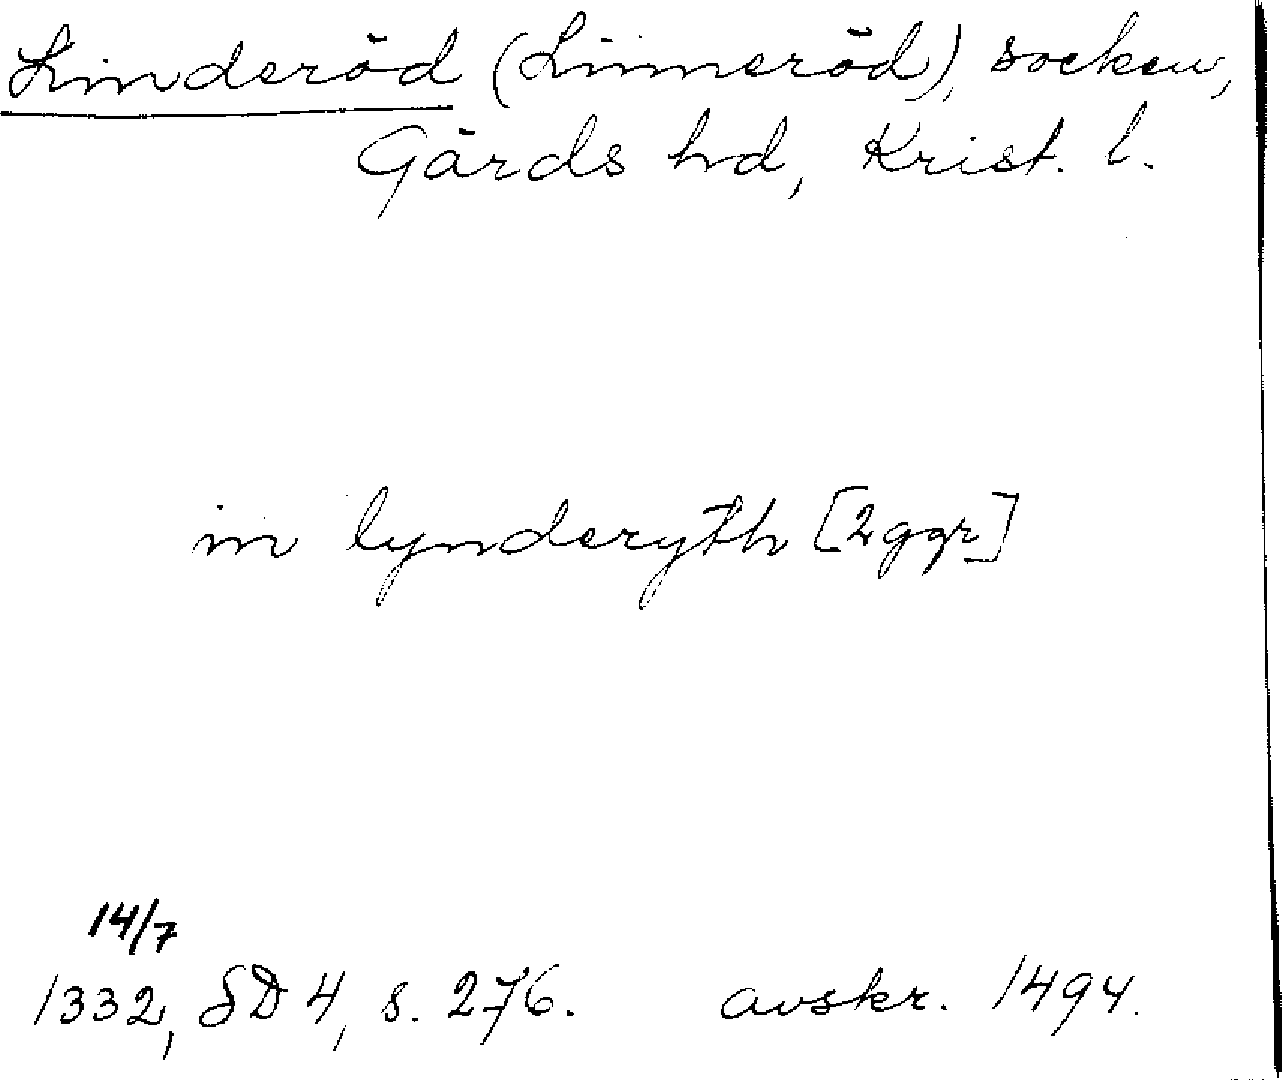 Linderöd (Linneröd), socken,
Gärds hd, Krist. l.
in lynderyth [2 ggr]
14/7
1332, SD 4, s. 276. avskr. 1494.